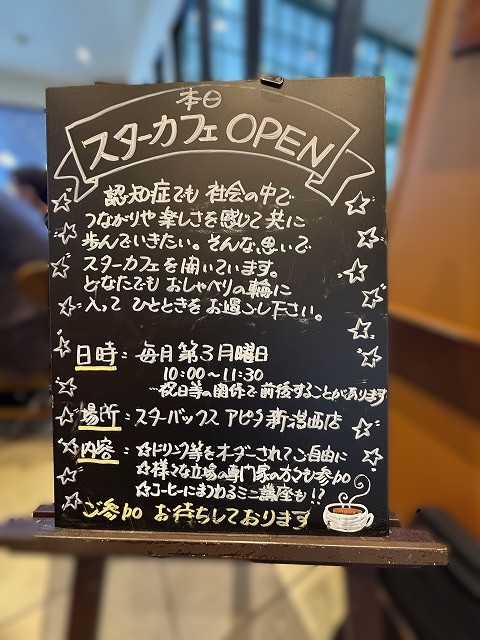 本日
スターカフェ OPEN
認知症でも 社会の中で
つながりや楽しさを感じて共に
歩んでいきたい。そんな思いで
スターカフェを開いています。
どなたでもおしゃべりの輪に
入って ひとときをお過ごし下さい。
日時：毎月第3月曜日
10:00〜11:30
※祝日等の関係で前後することがあります
場所：スターバックス アピタ新潟西店
内容：☆ドリンク等をオーダーされてご自由に
☆様々な立場の専門家の方々も参加
☆コーヒーにまつわるミニ講座も!?
ご参加 お待ちしております